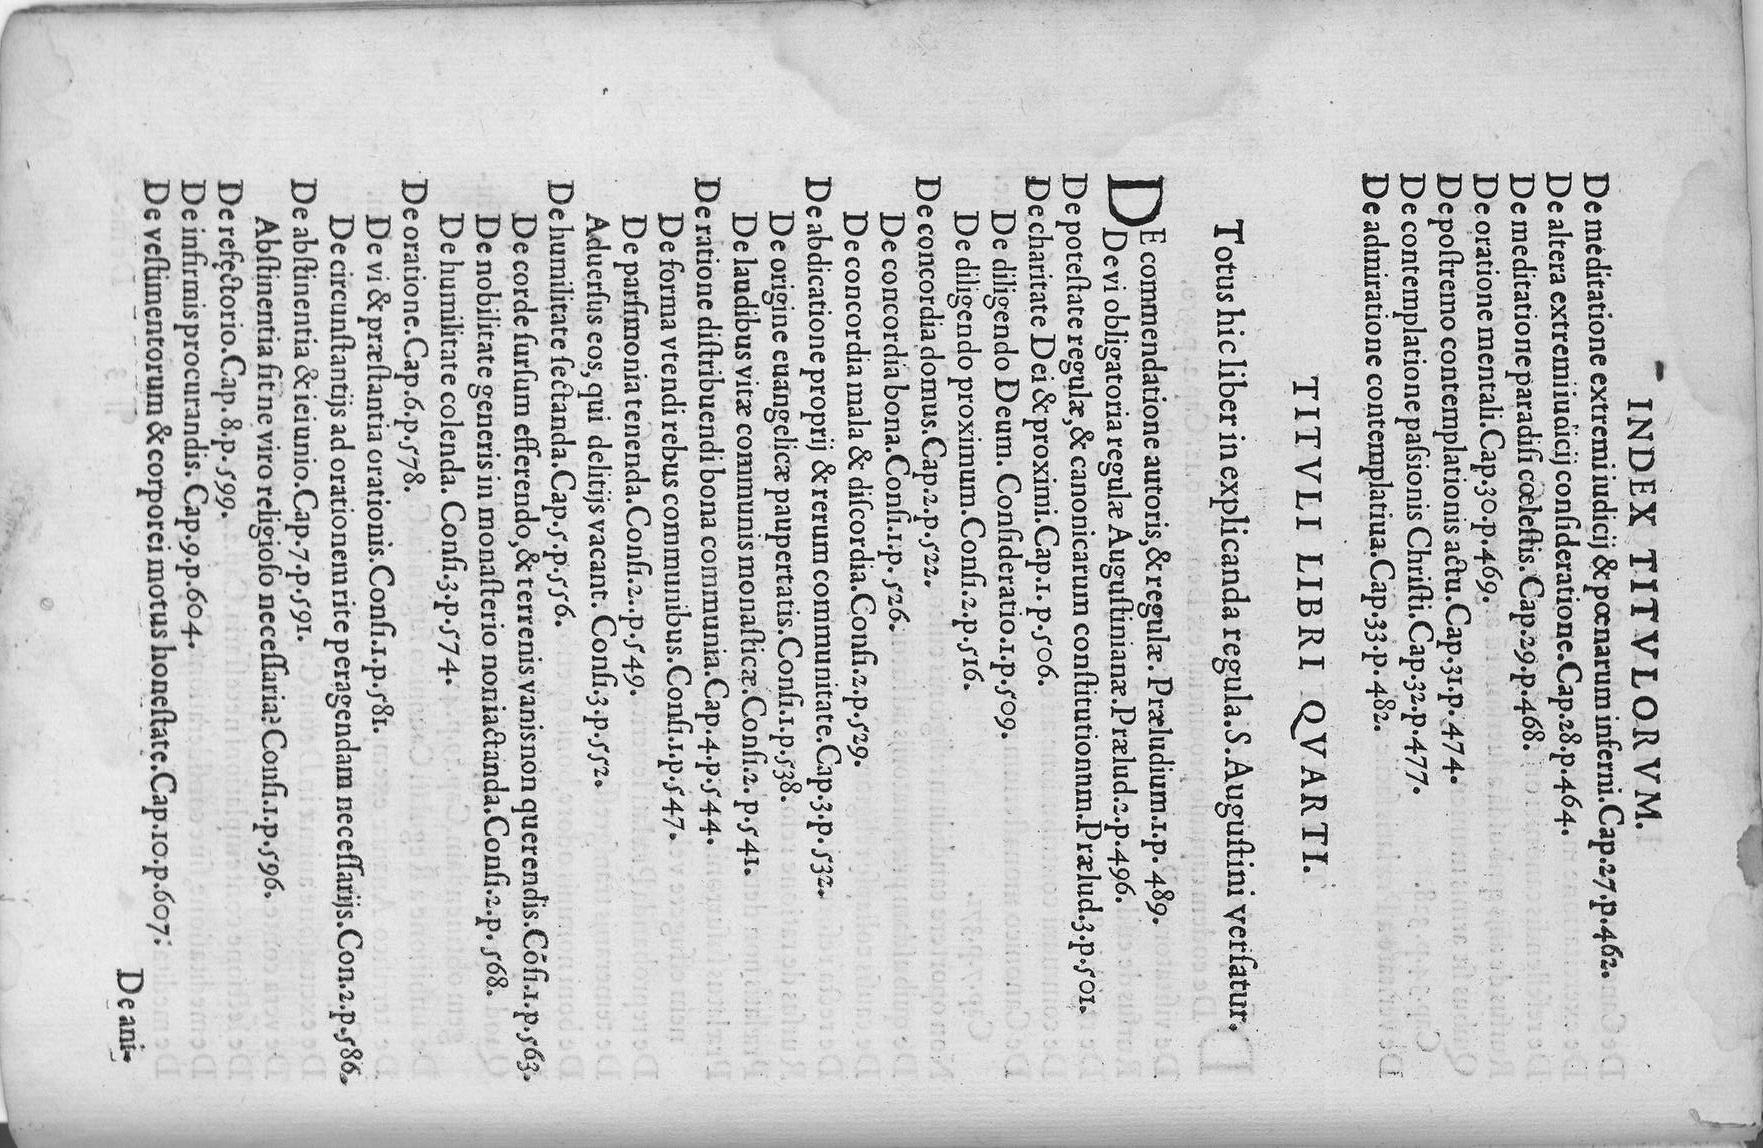 INDEX TITVLORVM.
De meditatione extremi iudicij & pœnarum inferni.Cap.27.p.462.
De altera extremi iudicij conſideratione.Cap.28.p.464.
De meditatione paradiſi cœleſtis.Cap.29.p.468.
De oratione mentali.Cap.30.p.469.
De poſtremo contemplationis actu.Cap.31.p.474.
De contemplatione paſsionis Chriſti.Cap.32.p.477.
De admiratione contemplatiua.Cap.33.p.482.
TITVLI LIBRI QVARTI.
Totus hic liber in explicanda regula.S.Auguſtini verſatur.
DE commendatione autoris,& regulæ. Præludium.1.p.489.
De vi obligatoria regulæ Auguſtinianæ.Prælud.2.p.496.
De poteſtate regulæ,& canonicarum conſtitutionnm.Prælud.3.p.501.
De charitate Dei & proximi.Cap.1.p.506.
De diligendo Deum. Conſideratio.1.p.509.
De diligendo proximum.Conſi.2.p.516.
De concordia domus.Cap.2.p.522.
De concordia bona.Conſi.1.p.526.
De concordia mala & diſcordia.Conſi.2.p.529.
De abdicatione proprij & rerum communitate.Cap.3.p.532.
De origine euangelicæ paupertatis.Conſi.1.p.538.
De laudibus vitæ communis monaſticæ.Conſi.2.p.541.
De ratione diſtribuendi bona communia.Cap.4.p.544.
De forma vtendi rebus communibus.Conſi.1.p.547.
De parſimonia tenenda.Conſi.2.p.549.
Aduerſus eos, qui delitijs vacant. Conſi.3.p.552.
De humilitate ſectanda.Cap.5.p.556.
De corde ſurſum efferendo,& terrenis vanis non querendis.Cõſi.1.p.563.
De nobilitate generis in monaſterio non iactanda.Conſi.2.p.568.
De humilitate colenda. Conſi.3.p.574.
De oratione.Cap.6.p.578.
De vi & præſtantia orationis.Conſi.1.p.581.
De circunſtantijs ad orationem rite peragendam neceſſarijs.Con.2.p.586.
De abſtinentia & ieiunio.Cap.7.p.591.
Abſtinentia ſit ne viro religioſo neceſſaria?Conſi.1.p.596.
De refectorio.Cap.8.p.599.
De infirmis procurandis. Cap.9.p.604.
De veſtimentorum & corporei motus honeſtate.Cap.10.p.607.
De ani-